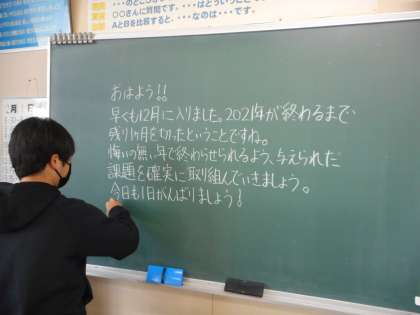 ・・・のところ
〇〇さんに質問です。・・・はどういうこと
AとBを比較すると、・・・なのは・・・です。
月
日
おはよう!!
早くも12月に入りました。2021年が終わるまで
残り1ヶ月を切ったということですね。
悔いの無い年で終わらせられるよう、与えられた
課題を確実に取り組んでいきましょう。
今日も1日がんばりましょう!